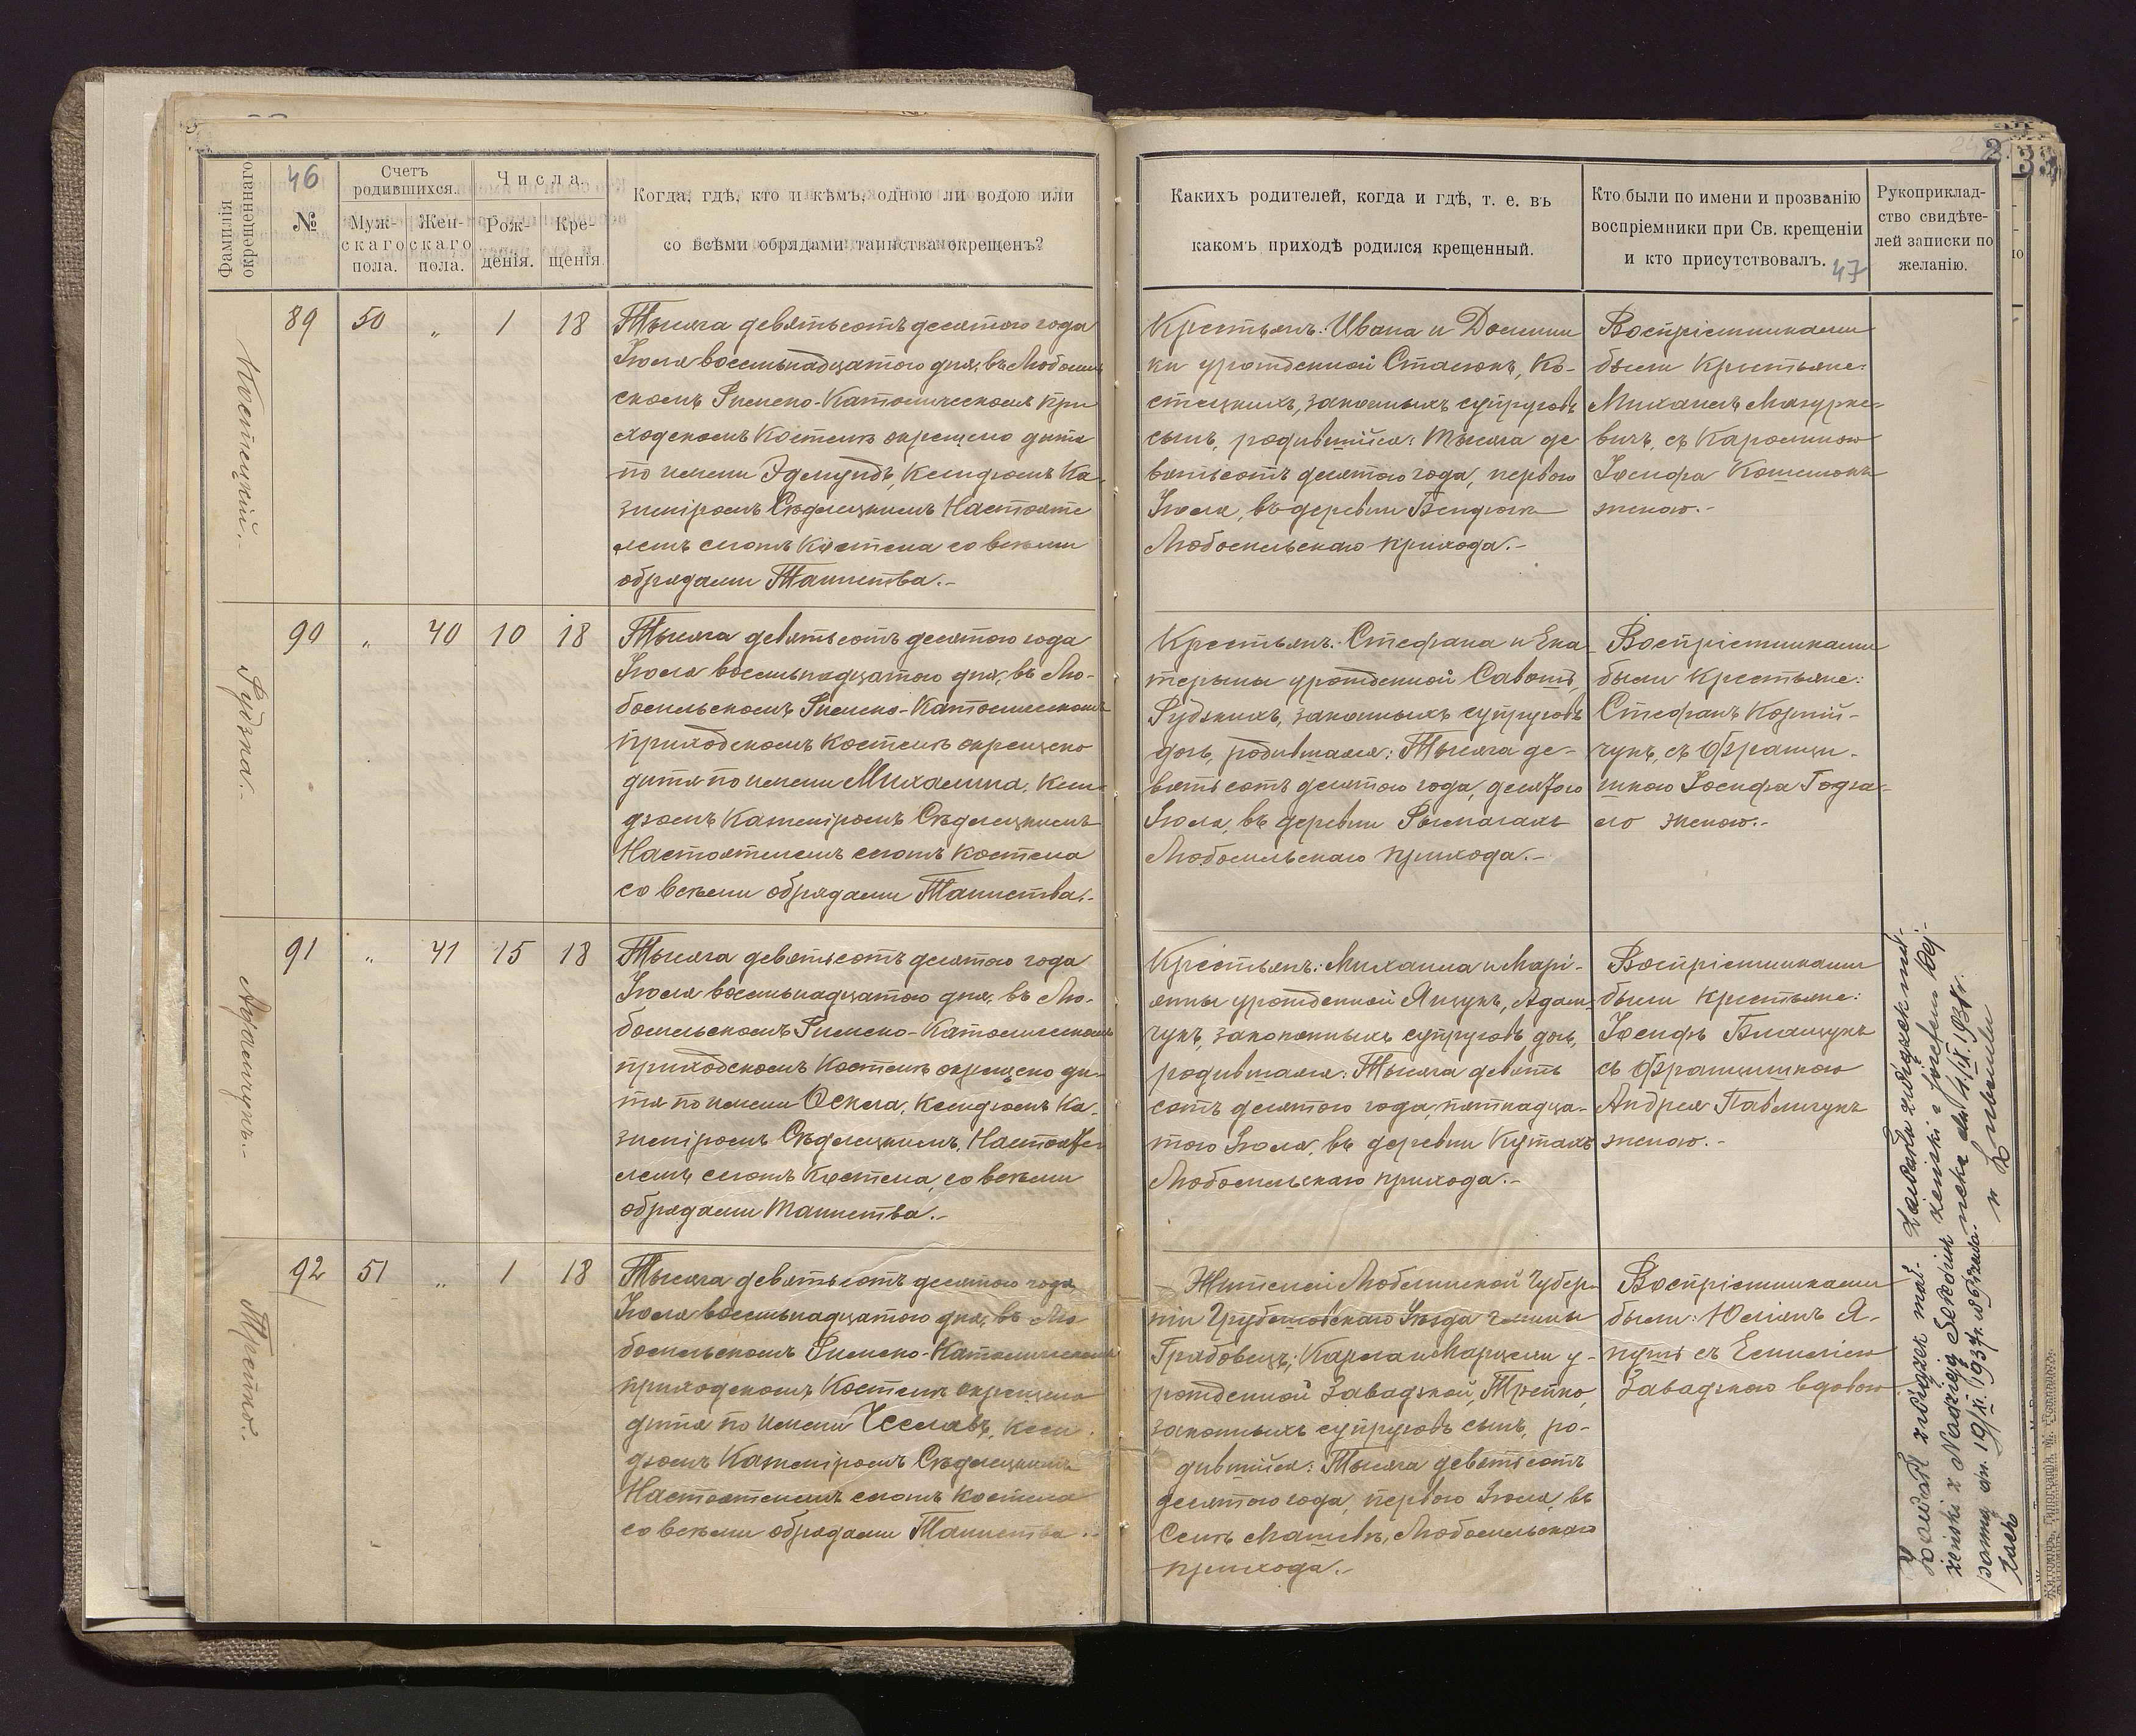 46
Фамилія окрещеннаго
№
Счетъ родившихся.
Мужскаго пола.
Женскаго пола.
Числа.
Рожденія.
Крещенія.
Когда, гдѣ, кто и кѣмъ, одною ли водою или
со всѣми обрядами таинства окрещенъ?
Каких​ъ родителей, когда и гдѣ, т. е. въ
какомъ приходѣ родился крещенный.
Кто были по имени и прозванію
воспріемники при Св. крещеніи
и кто присутствовалъ.
47
Рукоприклад-
ство свидѣте-
лей записки по
желанію.
Костецкій.-
89 50 „ 1 18
Тысяча девятьсотъ десятого года
Іюля восемьнадцатого дня, въ Любомль
скомъ Римско-Католическомъ При
ходскомъ Костелѣ окрещено дитя
по имени Эдмундъ, Ксендзомъ Ка-
зиміромъ Сѣдлецкимъ Настояте
лемъ сего​жъ Костела со всѣми
обрядами Таинства.-
Крестьянъ: Ивана и Домини
ки урожденной Стасюкъ, Ко-
стецкихъ, законныхъ супруговъ
сынъ, родившійся: Тысяча де
вятьсотъ десятого года, первого
Іюля, въ деревни Бендюга
Любомльскаго прихода.-
Воспріемниками
были Крестьяне:
Михаилъ Мазурке-
вичъ, съ Каролиною
Іосифа
женою.-
Рудзка.-
90 „ 40 10 18
Тысяча девятьсотъ десятого года
Іюля восемьнадцатого дня, въ Лю-
бомльскомъ Римско-Католическомъ
приходскомъ Костелѣ окрещено
дитя по имени Михалина, Ксен-
дзомъ Казиміромъ Сѣдлецкимъ
Настоятелемъ сегожъ Костела
со всѣми обрядами Таинства.-
Крестьянъ: Стефана и Ека-
терыны урожденной Савошъ,
Рудзкихъ, законныхъ супруговъ
дочь, родившаяся: Тысяча де-
вятьсотъ десятого года, десятого
Іюля, въ деревни Рымачахъ
Любомльскаго прихода.-
Воспріемниками
были Крестьяне:
Стефанъ Корній-
чукъ, съ Францы-
шкою Іосифа
женою.-
Адамчукъ.-
91 „ 41 15 18
Тысяча девятьсотъ десятого года
Іюля восемьнадцатого дня, въ Лю-
бомльскомъ Римско-Католическомъ
приходскомъ Костелѣ окрещено ди-
тя по имени Ѳекла, Ксендзомъ Ка-
зиміромъ Сѣдлецкимъ, Настояте-
лемъ сегожъ Костела, со всѣми
обрядами Таинства.-
Крестьянъ: Михаила и Марі-
янны урожденной Ящукъ, Адам-
чукъ, законныхъ супруговъ дочь,
родившаяся: Тысяча девять
сотъ десятого года, пятнадца-
того Іюля, въ деревни Кутахъ
Любомльскаго прихода.-
Воспріемниками
были Крестьяне:
Іосифъ Блащукъ
съ Францишкою
Андрея Павльчукъ
женою.-
Трепко.-
92 51 „ 1 18
Тысяча девятьсотъ десятого года
Іюля восемьнадцатого дня, въ Лю
бомльскомъ Римско-Католическомъ
приходскомъ Костелѣ окрещено
дитя по имени Чеславъ, Ксен-
дзомъ Казиміромъ Сѣдлецкимъ
Настоятелемъ сегожъ Костела
со всѣми обрядами Таинства.-
Жителей Люблинской Губер-
ніи Грубешовскаго Уѣзда гмины
Грабовецъ; Карла и Марцели у-
рожденной Завадзкой, Трепко,
законныхъ супруговъ сынъ, ро-
дившійся: Тысяча девятьсотъ
десятого года, первого Іюля, въ
Селѣ Машевѣ, Любомльскаго
прихода.-
Воспріемниками
были: Юліянъ Я-
съ Емиліею
Завадзкою вдовою
Zawarł związek mał-
żeński z Nadzieją
dn. 19/XI.1937r. w
Zawarła związek mał-
żeński z Józefem
dn. 4/IX.1938r.
w Lubomlu